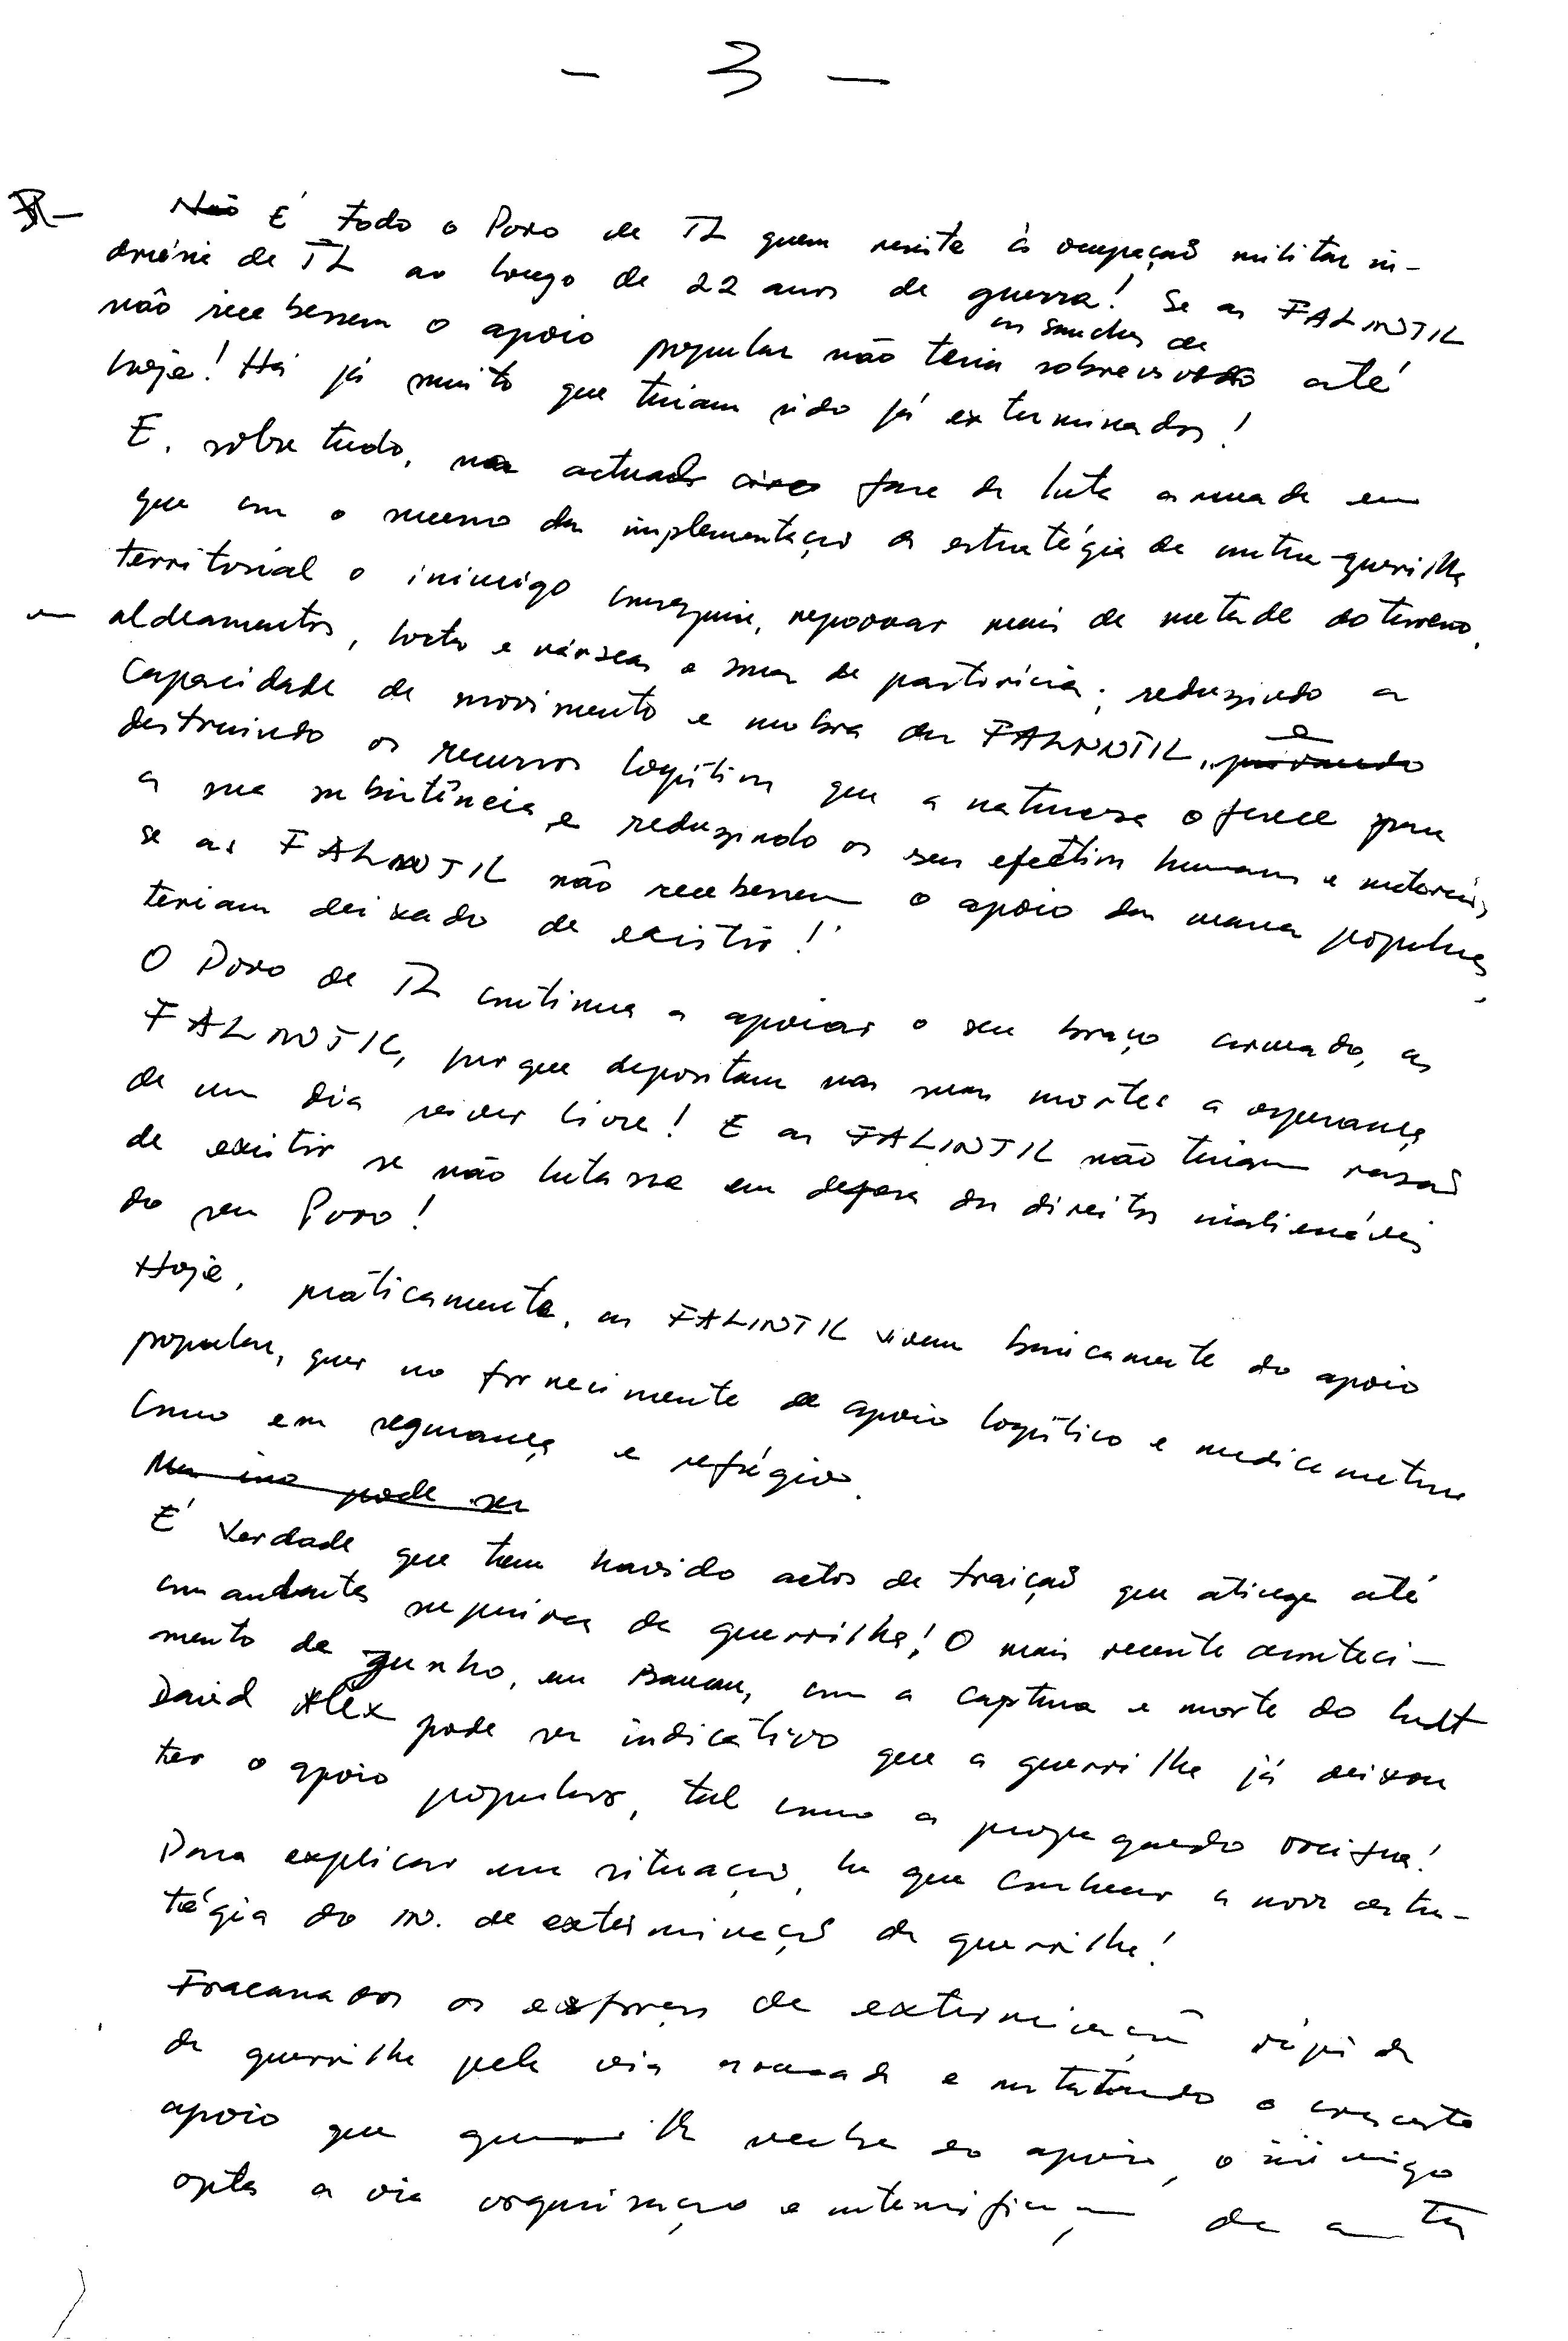 - 3 -
R- Não É todo o Povo de TL quem resiste à ocupação militar in-
donésia de TL ao longo de 22 anos de guerra! Se as FALINTIL
não recebessem o apoio popular não teria sobrevivido até
hoje! Há já muito que teriam sido já exterminados!
E, sobretudo, na actual fase da luta armada em
que com o da implementação da estratégia de contra-guerrilha
territorial o inimigo conseguiu, repovoar mais de metade do terreno,
em aldeamentos, hortas e várzeas e de pastorícia; reduzindo a
capacidade de movimento e manobra das FALINTIL, privando e
destruindo os recursos logísticos que a natureza oferece para
a sua subsistência, e reduzindo os seus efectivos humanos e materiais,
se as FALINTIL não recebessem o apoio das massas populares,
teriam deixado de existir!
O Povo de TL continua a apoiar o seu braço armado, as
FALINTIL, porque depositam nas suas mortes a esperança
de um dia viver livre! E as FALINTIL não teriam razão
de existir se não lutasse em defesa dos direitos inalienáveis
do seu Povo!
Hoje, práticamente, as FALINTIL vivem basicamente do apoio
popular, quer no fornecimente de apoio logístico e medicamentoso
como em segurança e refúgio.
Mas isso pode ser
É verdade que tem havido actos de traição que atinge até
comandantes superiores da guerrilha! O mais recente aconteci-
mento de Junho, em Baucau, com a captura e morte do
David Alex pode ser indicativo que a guerrilha já deixou
ter o apoio popular, tal como a propaganda
Para explicar essa situação, há que conhecer a nova estra-
tégia do IN. de exterminação da guerrilha!
Fracassados os esforços de exterminação rápida
da guerrilha pela via armada e constatando o crescente
apoio que guerrilha recebe do apoio, o inimigo
opta a via organização e intensificação de